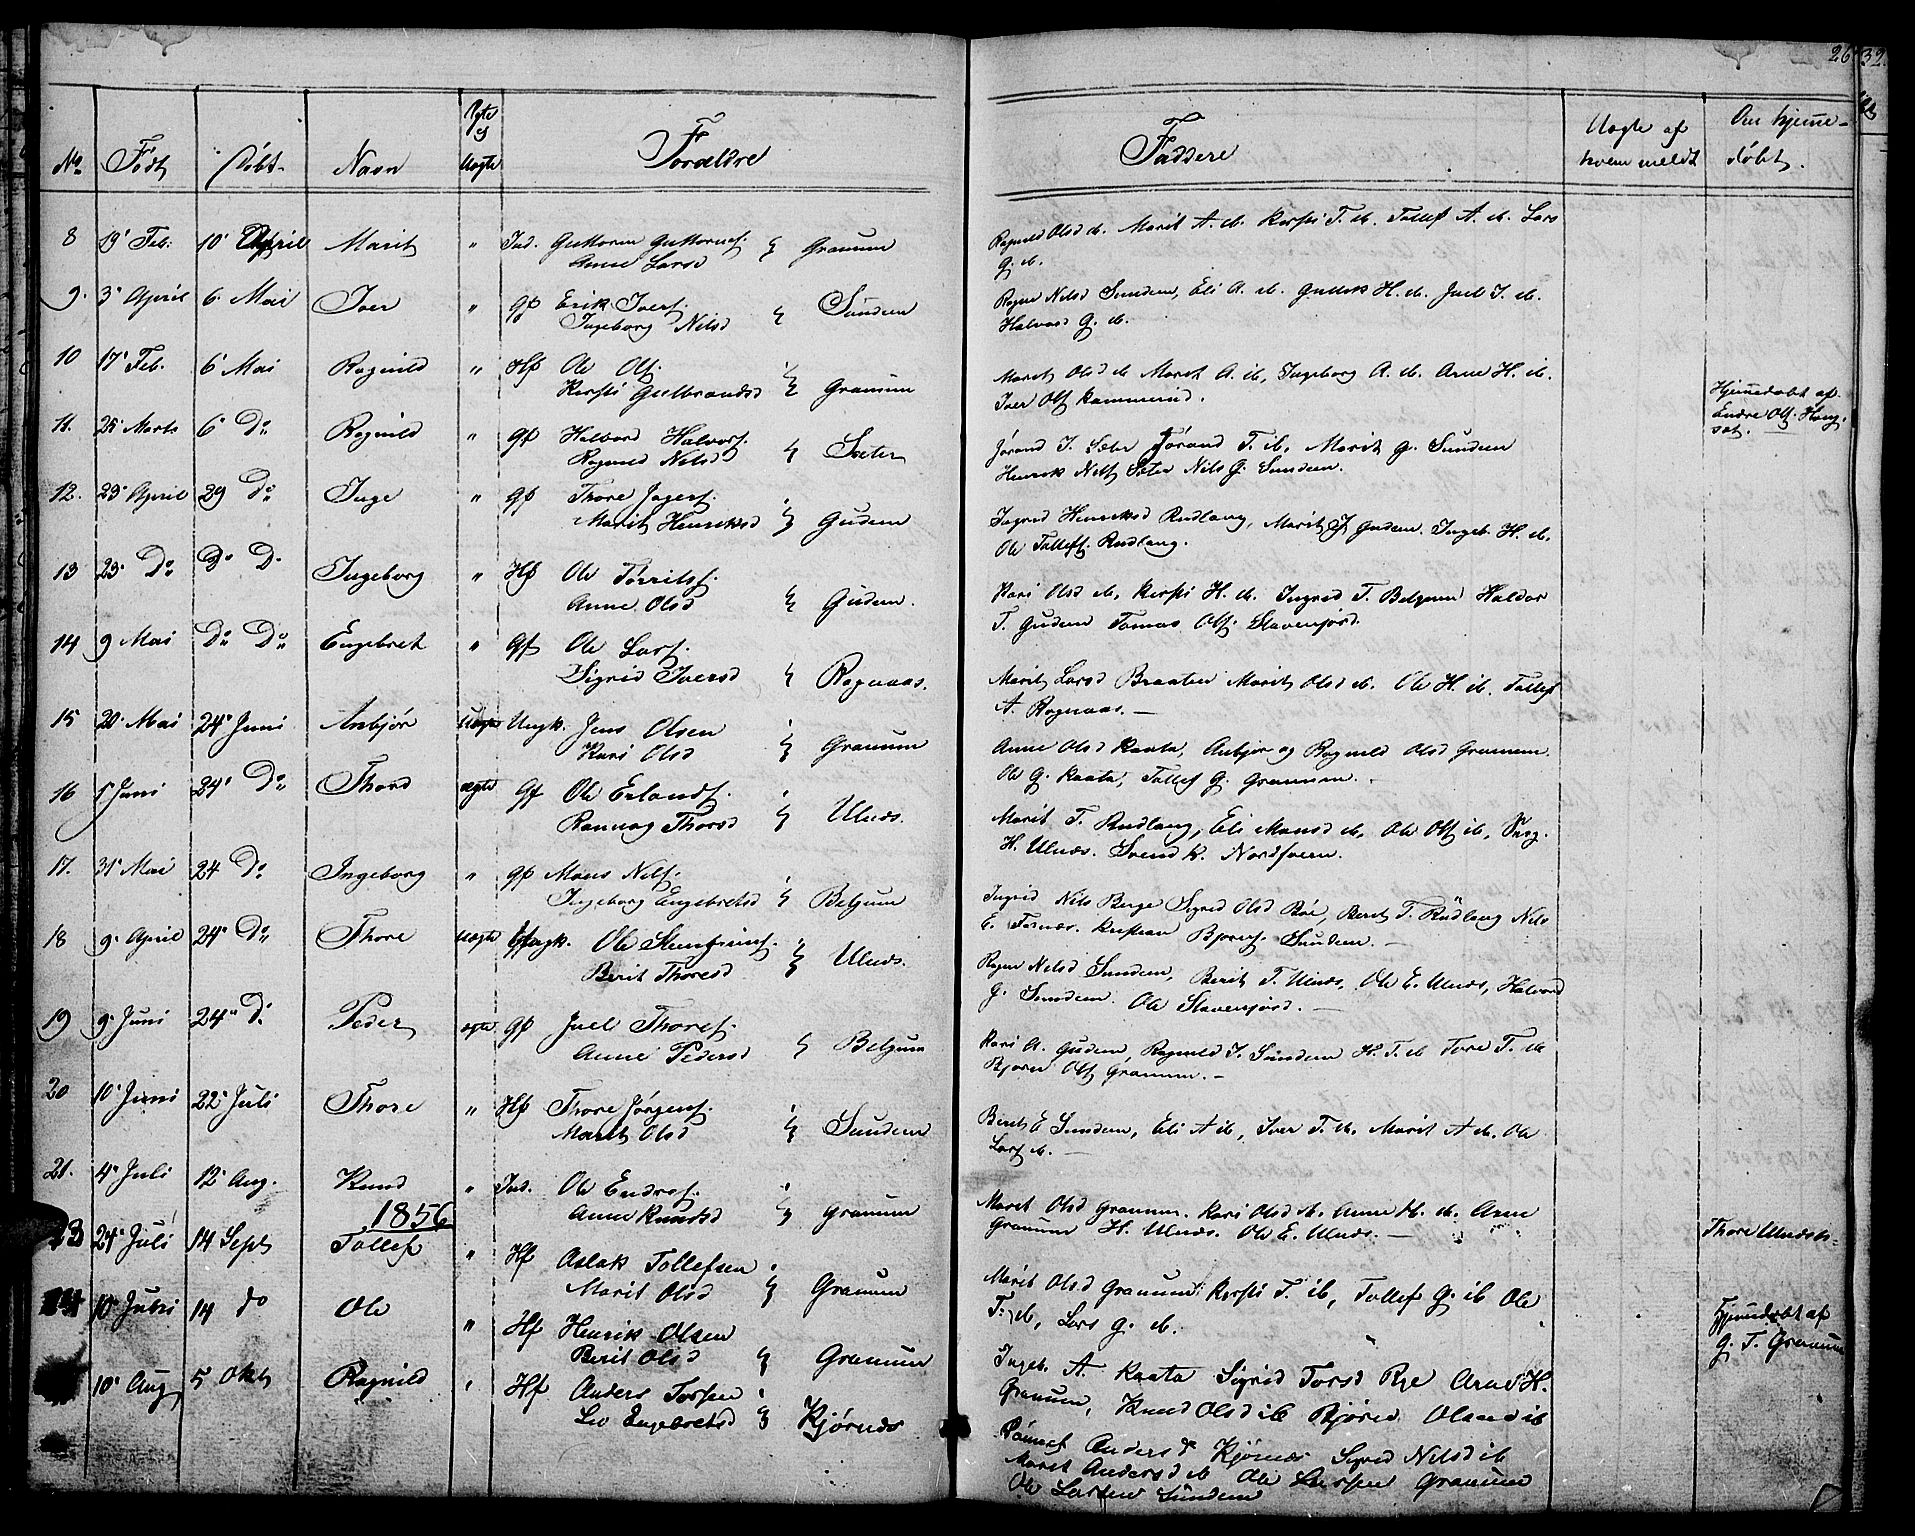 26 32.
No Født Døbt Navn Ægte el Uægte Forældre Faddere Uægte af hvem meldt Om hjemme-døbt.
8 19' Feb. 10' April Marit " Ind. Guttorm Guttormsf. Granum
Anne Larsd
Ragnild Olsd ib. Marit A. ib. Kirsti T. ib. Tollef A. ib. Lars
G. ib.
9. 3' April 6. Mai Iver " Gf Erik Iversf. Sundem
Ingeborg Nilsd
Nilsd Sundem, Eli A. ib. Gullik H. ib. Joel I. ib.
Halvord G. ib.
10 17' Feb. 6' Mai Ragnild " Hf Ole Olsf. Granum
Kirsti Gulbrandsd
Marit Olsd ib Marit A. ib, Ingeborg A. ib. Arne H. ib.
Iver Olsf Kammerud.
Hjemmedøbt af
Endre Olsf Haug
sæt.
11. 25' Marts 6' Do Ragnild " Gf Halvord Halvorsf. Sæter
Ragnild Nilsd
Jørand I. Sæter Jørand T. ib, Marit G. Sundem
Henrik Nilsf Sæter Nils G. Sundem.
12. 23' April 29 Do Inge " Gf Thore Ingersf. Gudem
Marit Henriksd
Ingrid Henriksd Rudlang, Marit I Gudem. Ingeb. H. ib.
Ole Tollefsf. Rudlang.
13 23' Do Do Do Ingeborg " Hf Ole Torritsf. Gudem.
Anne Olsd
Kari Olsd ib, Kirsti H. ib. Ingrid T. Belgum Haldor
T. Gudem Tomas Olsf. Slavensjord.
14 9 Mai Do Do Engebret " Gf Ole Larsf. Ragnaas.
Sigrid Iversd
Marit Larsd Braaten Marit Olsd ib. Ole H. ib. Tollef
A. Ragnaas. —
15 20. Mai 24' Juni Anbjør Uægte Ungk. Jens Olsen Granum
Kari Olsd
Anne Olsd Kaata, Anbjør og Ragnild Olsd Granum.
Ole G. Kaata, Tollef G. Granum. -
16 5' Juni 24' Do Thord ægte Gf Ole Erlandsf. Ulnæs.
Rannog Thorsd
Marit T. Rudlang, Eli Monsd ib, Ole Olsf ib,
H. Ulnæs. Svend K. Nordsveen.
17. 31' Mai 24 Do Ingeborg " Gf Mons Nilsf. Belgum
Ingeborg Engebretsd
Ingrid Nils Berge Sigrid Olsd Bøe, Berit T. Rudlang Nils
E. Fosnæs. Kristian Bjørnsf. Sundem. —
18 9' April 24' Do Thore Uægte Ungk. Ole Ulnæs.
Berit Thoresd
Nilsd Sundem, Berit T. Ulnæs, Ole E. Ulnæs, Halvord
G. Sundem. Ole Slavensjord. —
19 9' Juni 24' Do Peder ægte. Gf Joel Thoresf. Belgum
Anne Pedersd
Kari A. Gudem, Ragnild I. Sundem H. T. ib Tore T. ib
Bjørn Olsf Granum. -
20 10' Juni 22' Juli Thore " Hf Thore Jørgensf. Sundem
Marit Olsd
Berit E Sundem, Eli A ib, Iver T. ib. Marit A ib. Ole
Larsf ib. —
21. 4' Juli 12' Aug. Knud " Ind. Ole Endresf. Granum
Anne Knudsd
Marit Olsd Granum. Kari Olsd ib. Anne H. ib. Arne
Granum H. Ulnæs. Ole E. Ulnæs. —
1856
23 24' Juli 14 Sept Tollef " Hf Aslak Tollefsen Granum
Marit Olsd
Marit Olsd Granum. Kirsti T. ib, Tollef G. ib Ole
T. ib, Lars G. ib.
Thore Ulnæs
10' 14 do Ole " Hf Henrik Olsen Granum
Berit Olsd
Ingeb. A. Kaata Sigrid Torsd Rye Arne H.
Granum, Knud Olsd ib Bjørn Olsen ib
Hjemmedøbt af
G. T. Granum
10' Aug 5 Okt Ragnild Hf Anders Torsen Kjørnæs
Liv Engebretsd
Andersd Kjørnæs Sigrid Nilsd ib
Marit Andersd ib Ole Larsen Granum
Ole Larsen Sundem